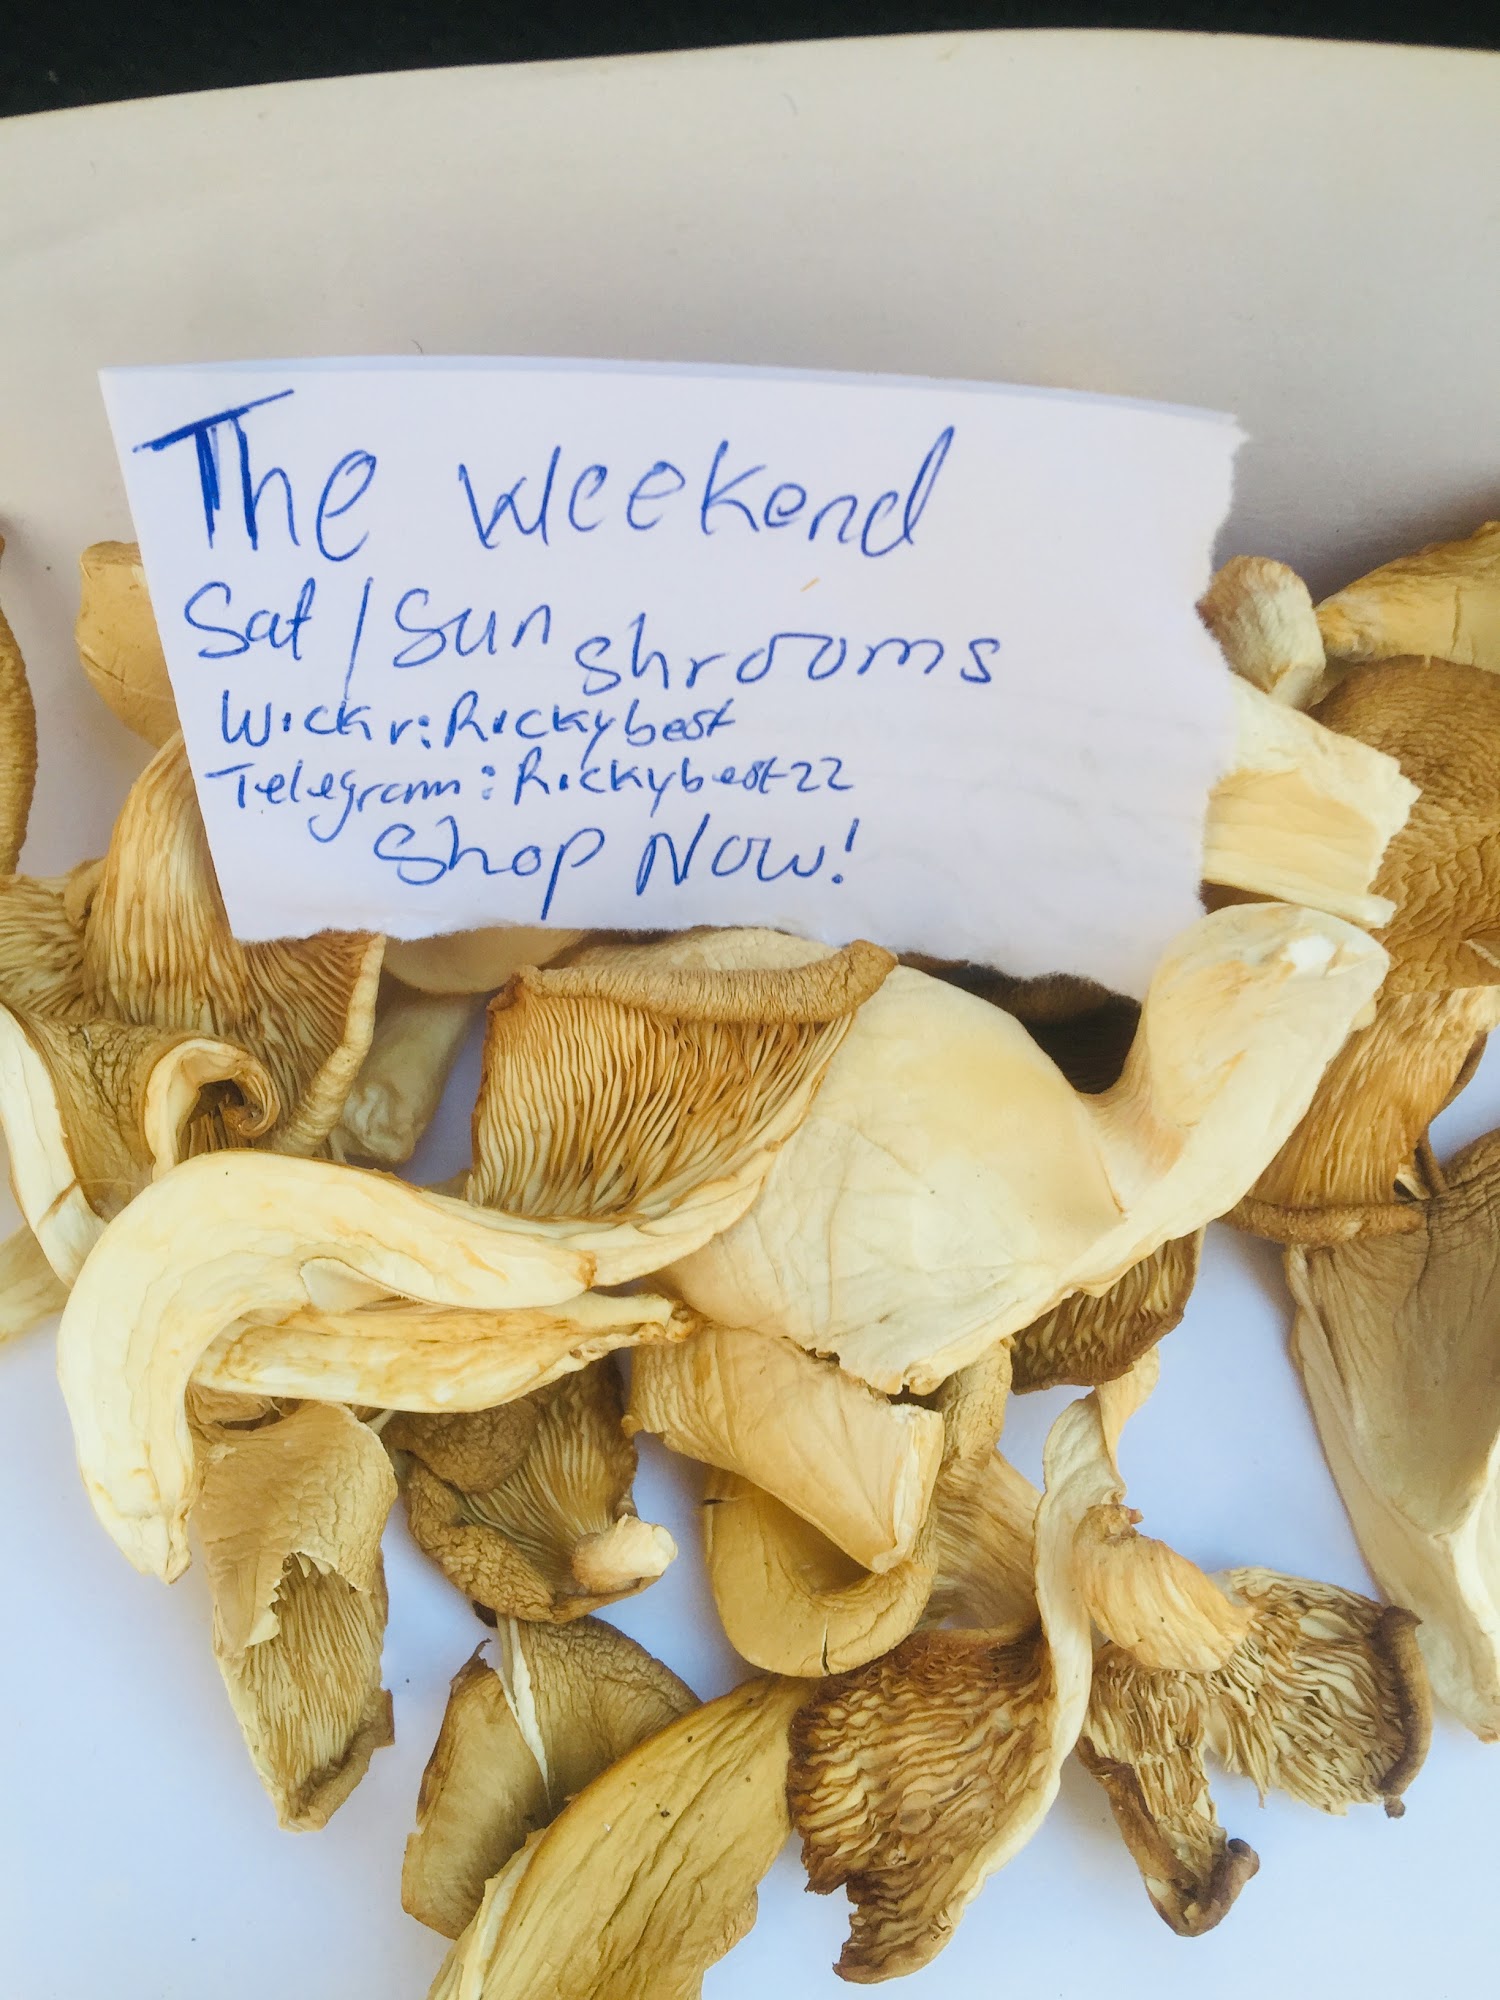 The weekend
Sat/Sun shrooms
Wickr: Rickybest
Telegram: Rickybest22
Shop Now!